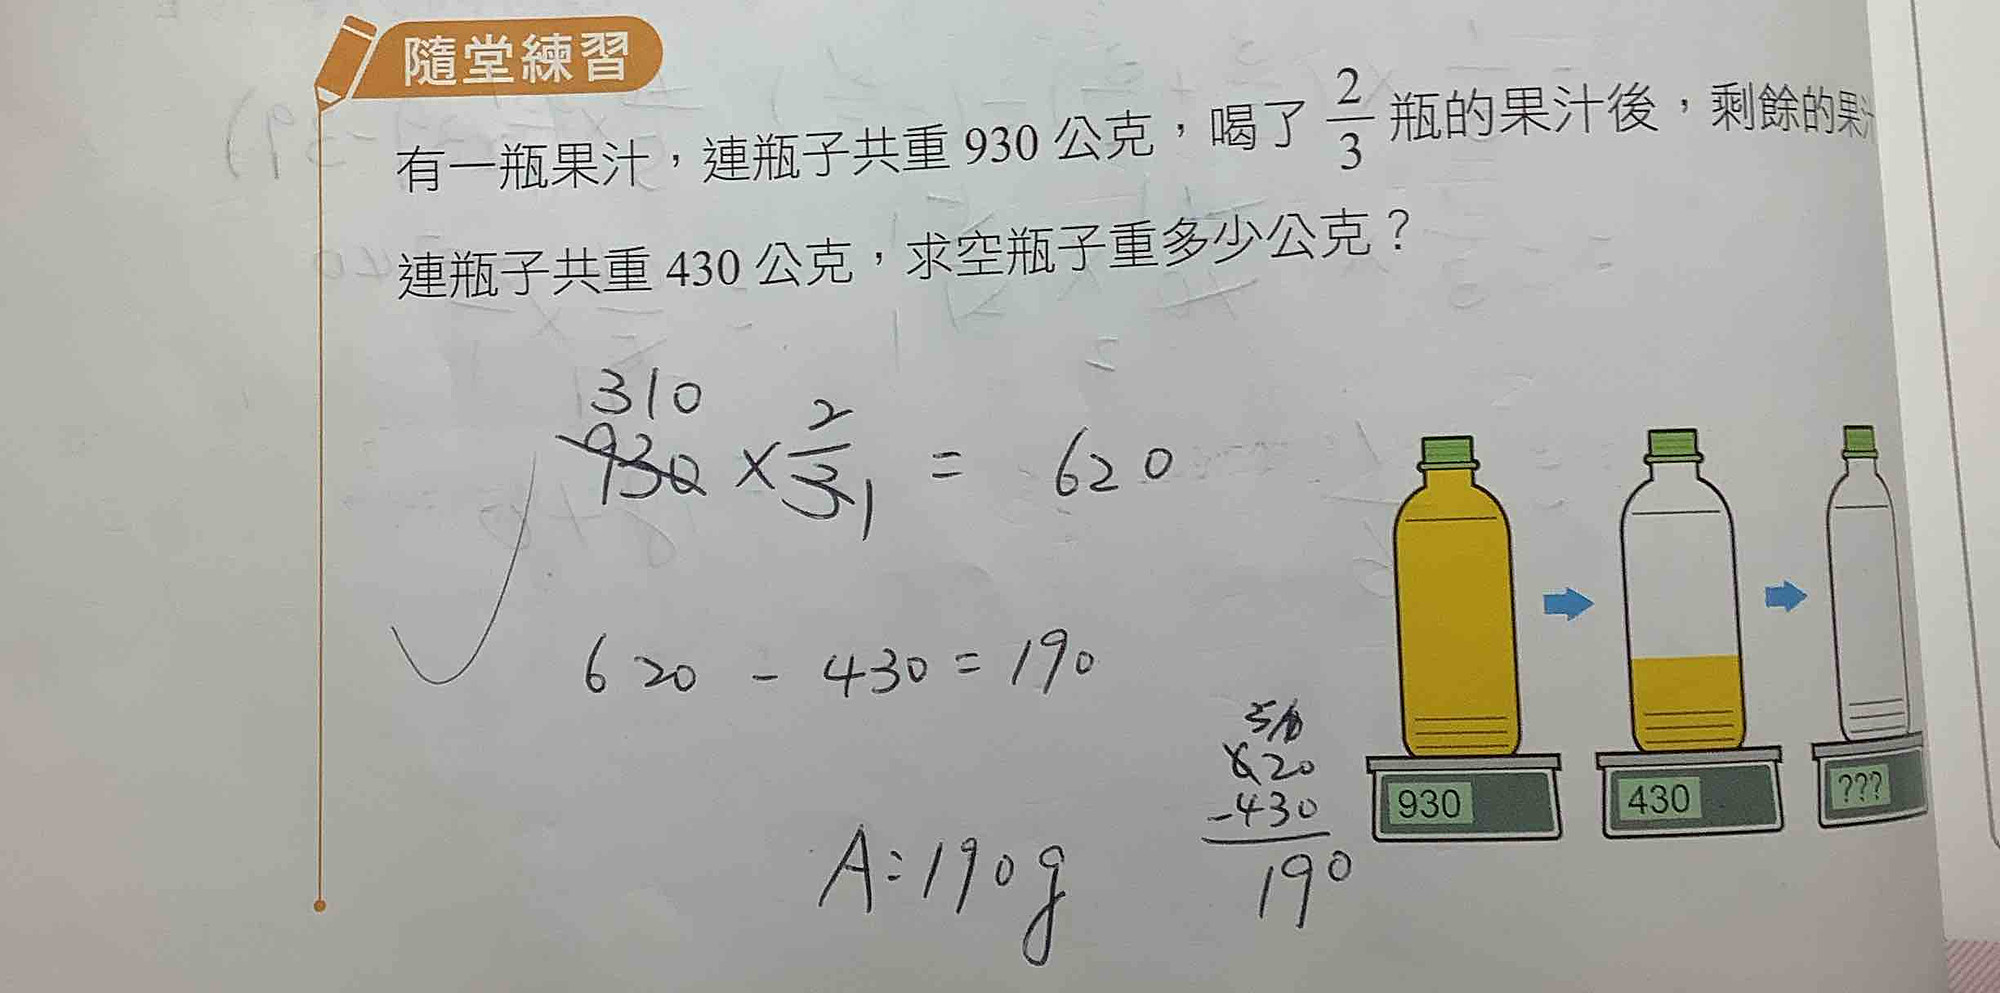 隨堂練習
有一瓶果汁，連瓶子共重 930 公克，喝了 2/3 瓶的果汁後，剩餘的果汁
連瓶子共重 430 公克，求空瓶子重多少公克？
310
930 × 2/3 1 = 620
620 - 430 = 190
5 1
620
-430
190
A:190g
930
430
???